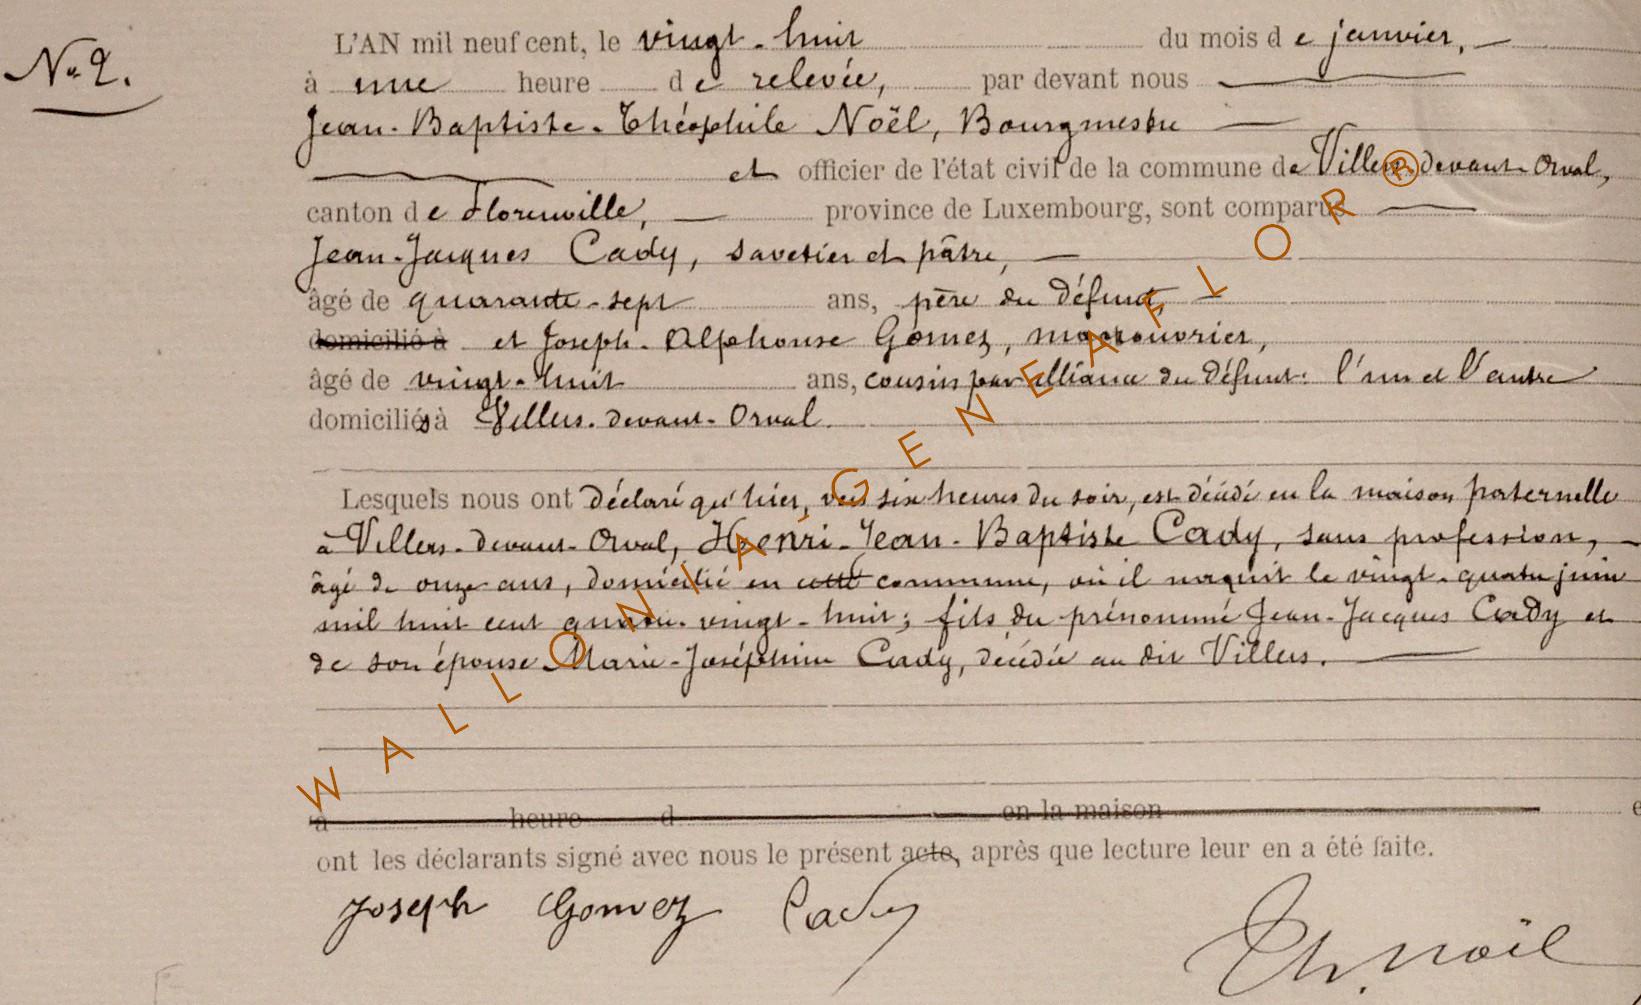 N° 2.
L'AN mil neuf cent, le vingt-huit du mois de janvier,
à une heure de relevée, par devant nous
Jean-Baptiste-Théophile Noël, Bourgmestre
et officier de l'état civil de la commune de Villers-devant-Orval,
canton de Florenville, province de Luxembourg, sont comparus
Jean-Jacques Cady, savetier et pâtre,
âgé de quarante-sept ans, père du défunt,
domicilié à et Joseph-Alphonse Gomez, manouvrier,
âgé de vingt-huit ans, cousin par alliance du défunt: l'un et l'autre
domiciliés à Villers-devant-Orval.
Lesquels nous ont déclaré qu'hier, vers six heures du soir, est décédé en la maison paternelle
à Villers-devant-Orval, Henri-Jean-Baptiste Cady, sans profession,
âgé de onze ans, domicilié en cette commune, où il naquit le vingt-quatre juin
mil huit cent quatre-vingt-huit; fils du prénommé Jean-Jacques Cady et
de son épouse Marie-Joséphine Cady, décédée au dit Villers.
à heure d en la maison e
ont les déclarants signé avec nous le présent acte, après que lecture leur en a été faite.
Joseph Gomez Cady
Th. Noël
WALLONIA-GENEAFLOR®